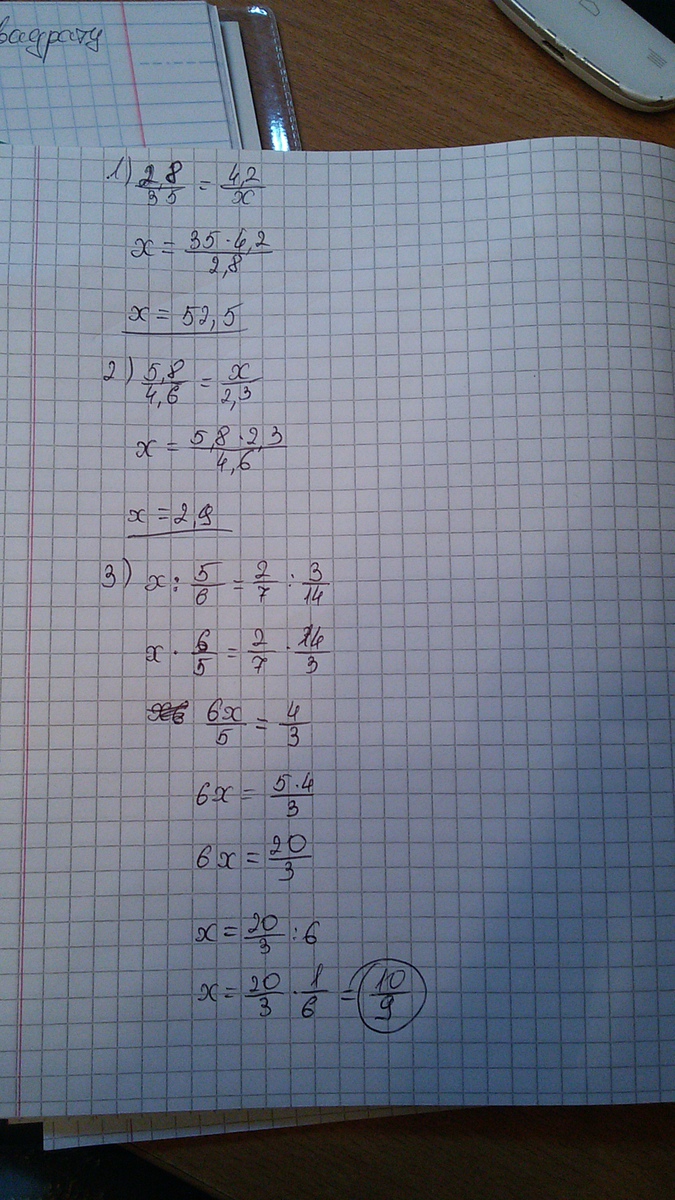 вадрату
1) 2,8/35 = 4,2/x
x = 35·4,2/2,8
x = 52,5
2) 5,8/4,6 = x/2,3
x = 5,8·2,3/4,6
x = 2,9
3) x : 5/6 = 2/7 : 3/14
x · 6/5 = 2/7 · 14/3
6x/5 = 4/3
6x = 5·4/3
6x = 20/3
x = 20/3 : 6
x = 20/3 · 1/6 = 10/9